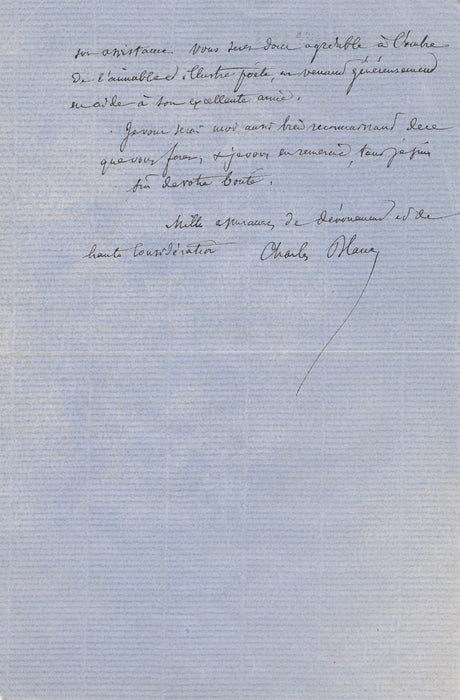 son assistance. Vous serez donc agréable à l'ombre
de l'aimable et illustre poète, en venant généreusement
en aide à son excellente amie.
Je vous serai moi aussi bien reconnaissant de ce
que vous ferez, & je vous en remercie, tant je suis
sûr de votre bonté.
Mille assurances de dévouement et de
haute considération Charles Blanc